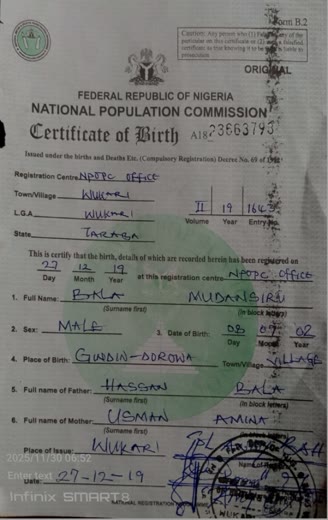 Form B.2
Caution: Any person who (1)
particular on this certificate or (2)
certificate as true knowing it to be
prosecution
ORIGINAL
FEDERAL REPUBLIC OF NIGERIA
NATIONAL POPULATION COMMISSION
Certificate of Birth A18 23663793
Issued under the births and Deaths Etc. (Compulsory Registration) Decree No. 69 of
Registration Centre NPOPC OFFICE
Town/Village WUKARI
L.G.A WUKARI II 19
Volume Year Entry No.
State TARABA
This is certify that the birth, details of which are recorded herein has been registered on
27 12 19 at this registration centre NPOPC OFFICE
Day Month Year
1. Full Name: BALA MUDANSIRU
(Surname first) (in block letters)
2. Sex: MALE 3. Date of Birth: 08 07 02
Day Month Year
4. Place of Birth: GINDIN-DOROWA Town/Village VILLAGE
5. Full name of Father: HASSAN BALA
(Surname first) (In block letters)
6. Full name of Mother: USMAN AMINA
(Surname first) (In block letters)
Place of Issue: WUKARI
2025/11/30 06:52
Enter text
Date: 27-12-19
Infinix SMART 8
NATIONAL REGISTRATION